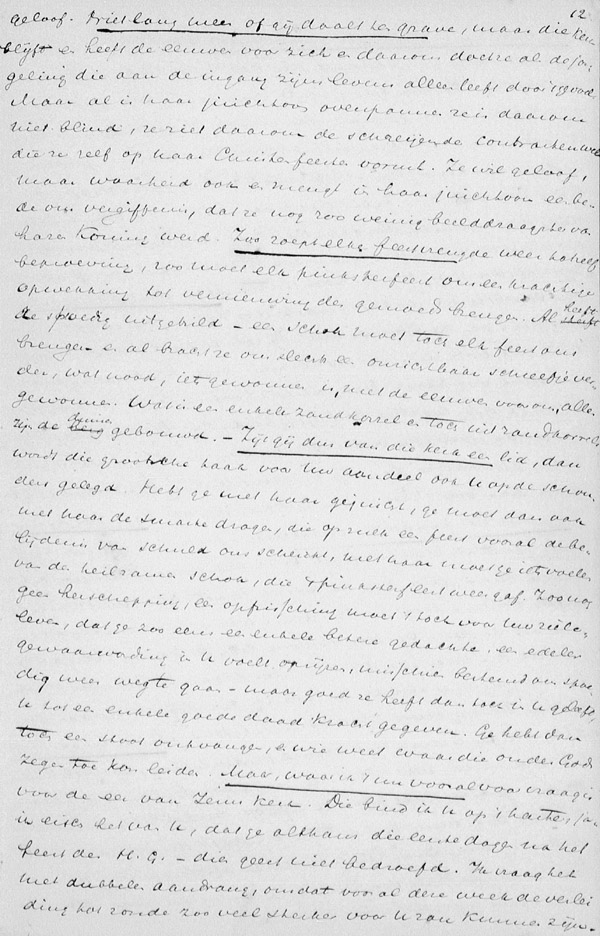 12.
geloof. Driftlang meer of gij daalt ten grave, maar die kerk
blijft en heeft de eeuwen voor zich en daarom dachte al de jon
geling die aan de ingang zijns levens alles leeft door 's
Maar al is haar juichtoon overspannen ze is daarom
niet blind, ze ziet daarom de schreijende contrasten wel
die ze zelf op haar Christenfeesten vormt. Ze wil geloof,
maar waarheid ook en mengt in haar juichtoon een be-
de om vergiffenis, dat ze nog zoo weinig beelddraagster van
haren Koning werd. Zoo roept elke feestvreugde weer tot zelf
beproeving, zoo moet elk pinksterfeest ons een krachtige
opwekking tot vernieuwing des gemoeds brengen. Al heeft
de spoedig uitgebild - een schok moet toch elk feest ons
brengen en al bracht ze ons slechts een onzichtbaar schreefje ver-
der, wat nood, iets gewonnen is, met de eeuwen voor ons, alles
gewonnen. Wat is een enkele zandkorrel en toch uit zandkorrels
zijn de duinen gebouwd. - Zijt gij dus van die kerk een lid, dan
wordt die grootsche taak voor Uw aandeel ook U op de schou-
ders gelegd. Hebt ge met haar gejuicht, ge moet dan ook
met haar de smarte dragen, die op zulk een feest vooral de be-
lijdenis van schuld ons schenkt, met haar moet ge iets voelen
van de heilzamen schok, die 't pinksterfeest weer gaf. Zoo nog
geen herschepping, een opfrissching moet 't toch voor Uw ziele-
leven, dat ge zoo eens een enkele betere gedachte, een edeler
gewaarwording in U voelt oprijzen, misschien bestemd om spoe-
dig weer weg te gaan - maar goed ze heeft dan toch in U geleefd,
U tot een enkele goede daad kracht gegeven. Ge hebt dan
toch een stoot ontvangen, en wie weet waar die onder Gods
zegen toe kan leiden. Maar, waar ik 't nu vooral voor vraag is
voor de eer van Jezus Kerk. Die bind ik U op 't harte, ja
ik eisch het van U, dat ge althans die eerste dagen na het
feest des H. G. - dien geest niet bedroeft. Ik vraag het
met dubbelen aandrang, omdat vooral deze week de verlei
ding tot zonde zoo veel sterker voor U zou kunnen zijn.